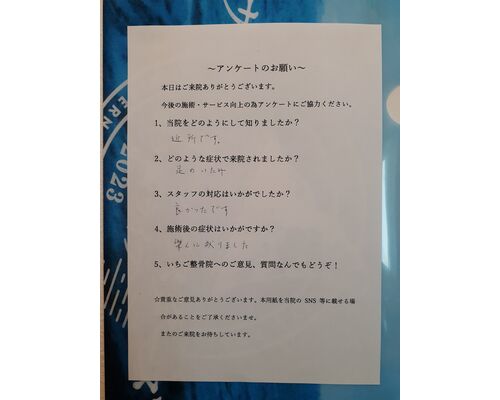 ～アンケートのお願い～
本日はご来院ありがとうございます。
今後の施術・サービス向上の為アンケートにご協力ください。
1、当院をどのようにして知りましたか？
近所です。
2、どのような症状で来院されましたか？
足のいたみ
3、スタッフの対応はいかがでしたか？
良かったです
4、施術後の症状はいかがですか？
楽になりました
5、いちご整骨院へのご意見、質問なんでもどうぞ！
☆貴重なご意見ありがとうございます。本用紙を当院の SNS 等に載せる場
合があることをご了承くださいませ。
またのご来院をお待ちしています。
2023